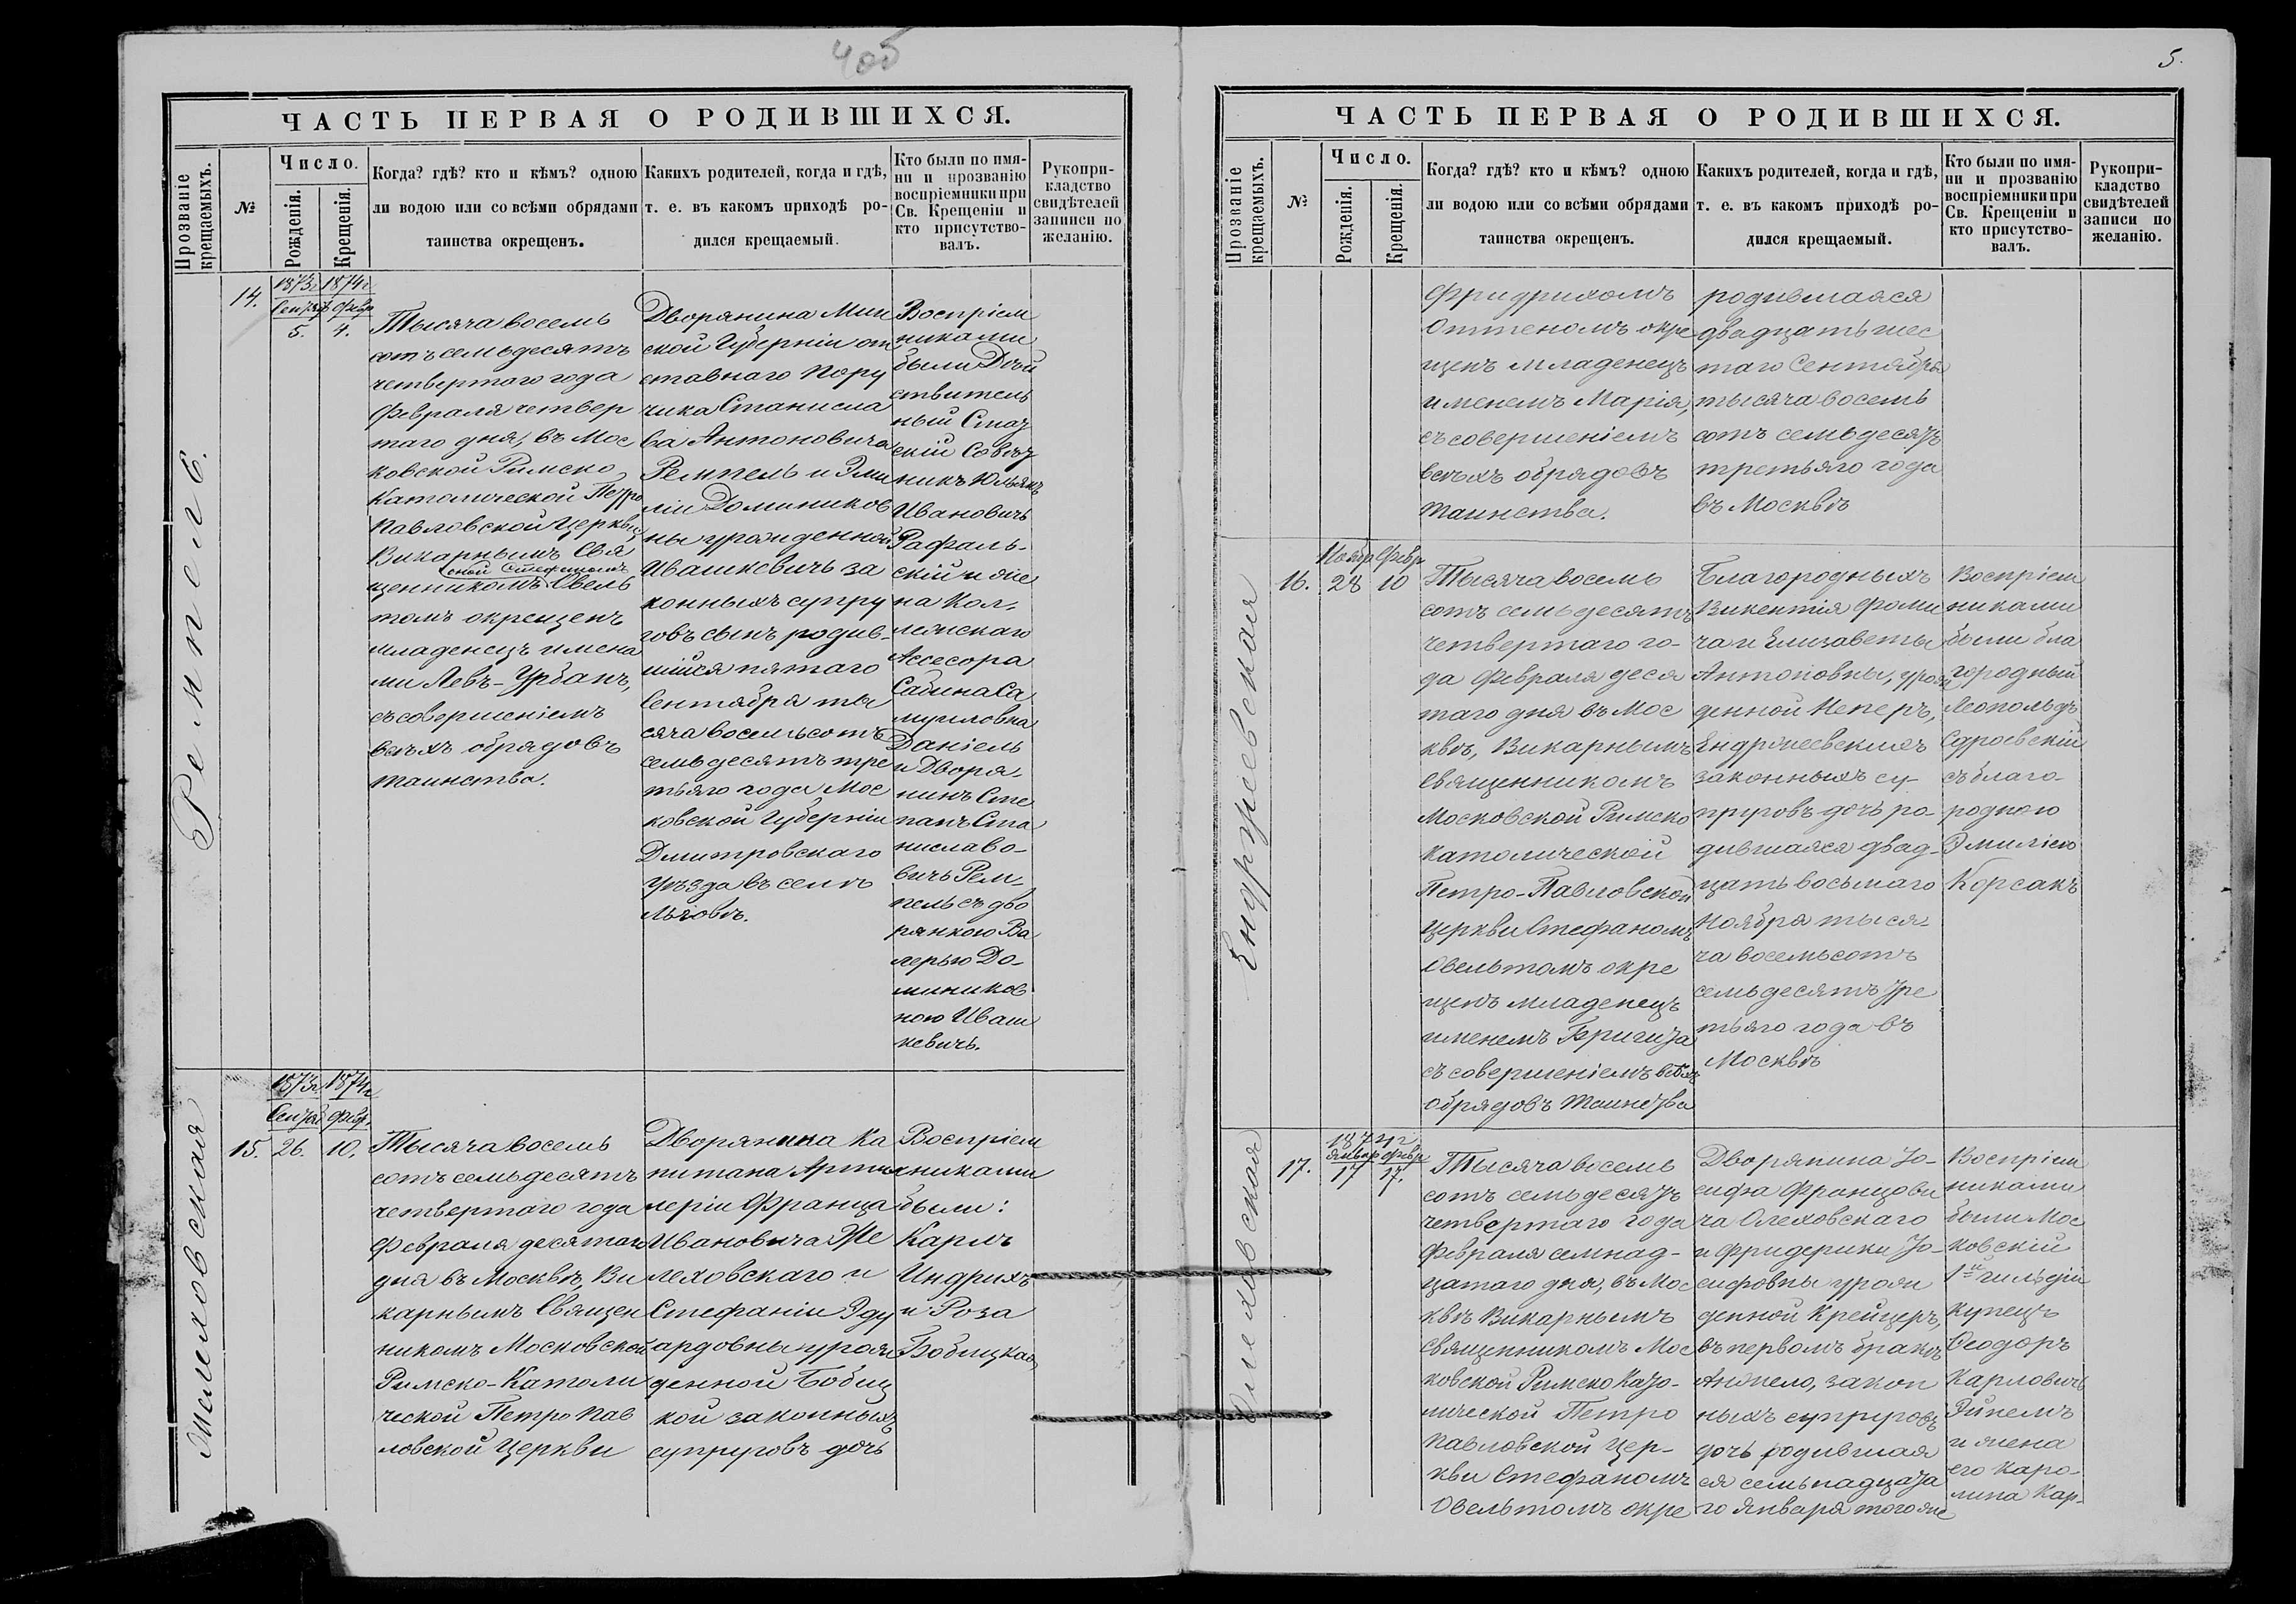 4 об
ЧАСТЬ ПЕРВАЯ О РОДИВШИХСЯ.
Прозваніе крещаемыхъ.
№
Число.
Рожденія.
Крещенія.
Когда? гдѣ? кто и кѣмъ? одною
ли водою или со всѣми обрядами
таинства окрещенъ.
Какихъ родителей, когда и гдѣ,
т. е. въ какомъ приходѣ ро-
дился крещаемый.
Кто были по имя-
ни и прозванію
воспріемники при
Св. Крещеніи и
кто присутство-
валъ.
Рукопри-
кладство
свидѣтелей
записи по
желанію.
Ремпель.
14.
1873г
Сентяб
5.
1874г
Февр
4.
Тысяча восемь
сотъ семьдесятъ
четвертаго года
Февраля четвер
таго дня, въ Мос
ковской Римско
Католической Петро
Павловской Церкви
Викарнымъ Свя
щенникомъ Овель
томъ окрещенъ
младенецъ имена
ми Левъ-Урбанъ,
съ совершеніемъ
всѣхъ обрядовъ
таинства.
Дворянина Мин
ской Губерніи от
ставнаго Пору
чика Станисла
ва Антоновича
Ремпель и Эми
ліи Домиников
ны урожденной
Ивашкевичъ за
конныхъ супру
говъ сынъ родив-
шійся пятаго
Сентября ты
сяча восемьсотъ
семьдесятъ тре
тьяго года Мос
ковской Губерніи
Дмитровскаго
уѣзда въ селѣ
Льговѣ.
Воспріем
никами
были Дѣй
ствитель
ный Стат
скій Совѣт
никъ Юльянъ
Ивановичъ
Рафаль-
скій и же
на Кол-
лежскаго
Ассесора
Сабина Са
муиловна
Даніель
и Дворя-
нинъ Сте
панъ Ста
ниславо-
вичъ Рем-
пель съ дво
рянкою Ва
лерью До-
миников
ною Иваш
кевичъ.
Желеховская
15.
1873г.
Сентяб
26.
1874г
Февр.
10.
Тысяча восемь
сотъ семьдесятъ
четвертаго года
Февраля десятаго
дня въ Москвѣ, Ви
карнымъ Священ
никомъ Московской
Римско-Католи
ческой Петро Пав
ловской Церкви
Дворянина Ка
питана Артил
леріи Франца
Ивановича Же
леховскаго и
Стефаніи Эду
ардовны урож
денной Бобиц
кой законныхъ
супруговъ дочь
Воспріем
никами
были:
Карлъ
Индрихъ
и Роза
Бобицкая
5.
ЧАСТЬ ПЕРВАЯ О РОДИВШИХСЯ.
Прозваніе крещаемыхъ.
№
Число.
Рожденія.
Крещенія.
Когда? гдѣ? кто и кѣмъ? одною
ли водою или со всѣми обрядами
таинства окрещенъ.
Какихъ родителей, когда и гдѣ,
т. е. въ какомъ приходѣ ро-
дился крещаемый.
Кто были по имя-
ни и прозванію
воспріемники при
Св. Крещеніи и
кто присутство-
валъ.
Рукопри-
кладство
свидѣтелей
записи по
желанію.
Фридрихомъ
Оттеномъ окре
щенъ младенецъ
именемъ Марія,
съ совершеніемъ
всѣхъ обрядовъ
таинства.
родившаяся
двадцать шес
таго Сентября
тысяча восемь
сотъ семьдесятъ
третьяго года
въ Москвѣ
Ендржеевская
16.
Ноябр
28
Февр
10
Тысяча восемь
сотъ семьдесятъ
четвертаго го-
да Февраля деся
таго дня въ Мос
квѣ, Викарнымъ
Священникомъ
Московской Римско
Католической
Петро-Павловской
Церкви Стефаномъ
Овельтомъ окре
щенъ младенецъ
именемъ Бригита
съ совершеніемъ всѣхъ
обрядовъ таинства
Благородныхъ
Викентія Фоми
ча и Елизаветы
Антоновны, урож
денной Неперъ,
Ендржеевскихъ
законныхъ су-
пруговъ дочь ро-
дившаяся двад-
цать восьмаго
Ноября тыся-
ча восемьсотъ
семьдесятъ тре
тьяго года въ
Москвѣ
Воспріем
никами
были бла
городный
Леопольдъ
съ благо-
родною
Эмиліею
Корсакъ
Олеховская
17.
1874г
Январ
17
Февр
17.
Тысяча восемь
сотъ семьдесятъ
четвертаго года
Февраля семнад-
цатаго дня, въ Мос
квѣ Викарнымъ
Священникомъ Мос
ковской Римско Като-
лической Петро
Павловской Цер-
кви Стефаномъ
Овельтомъ окре
Дворянина Іо-
сифа Францови
ча Олеховскаго
и Фридерики Іо-
сифовны урож
денной Крейцеръ,
въ первомъ бракѣ
закон
ныхъ супруговъ
дочь родившая
ся семьнадцата
го Января того же
Воспріем
никами
были Мос
ковскій
1й гильдіи
купецъ
Ѳеодоръ
Карловичъ
Эйнемъ
и жена
его Каро-
лина Кар-